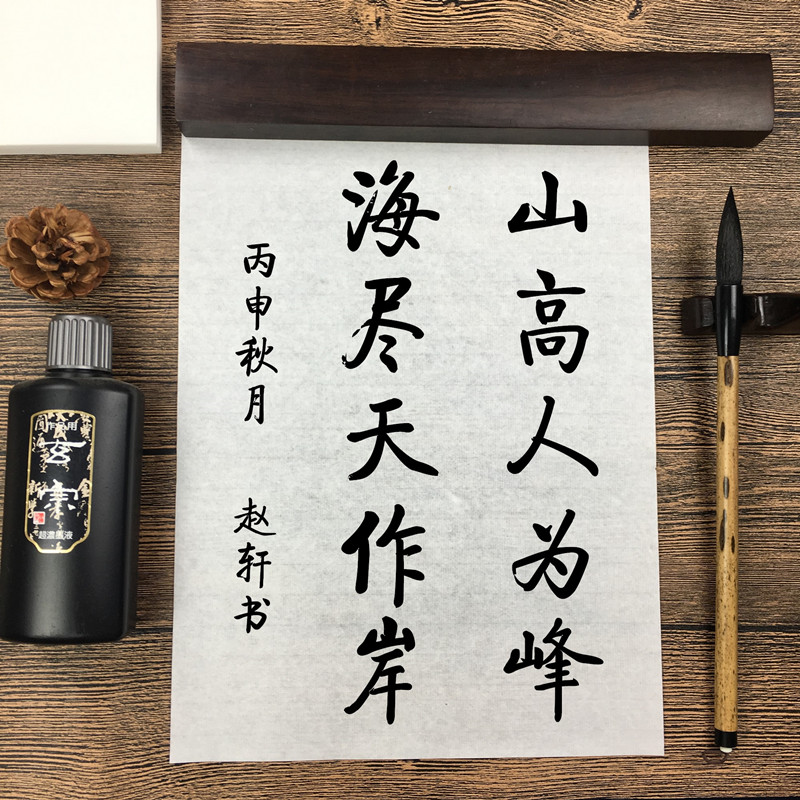 山高人为峰
海尽天作岸
丙申秋月 赵轩书
作品用
玄宗
超濃墨液